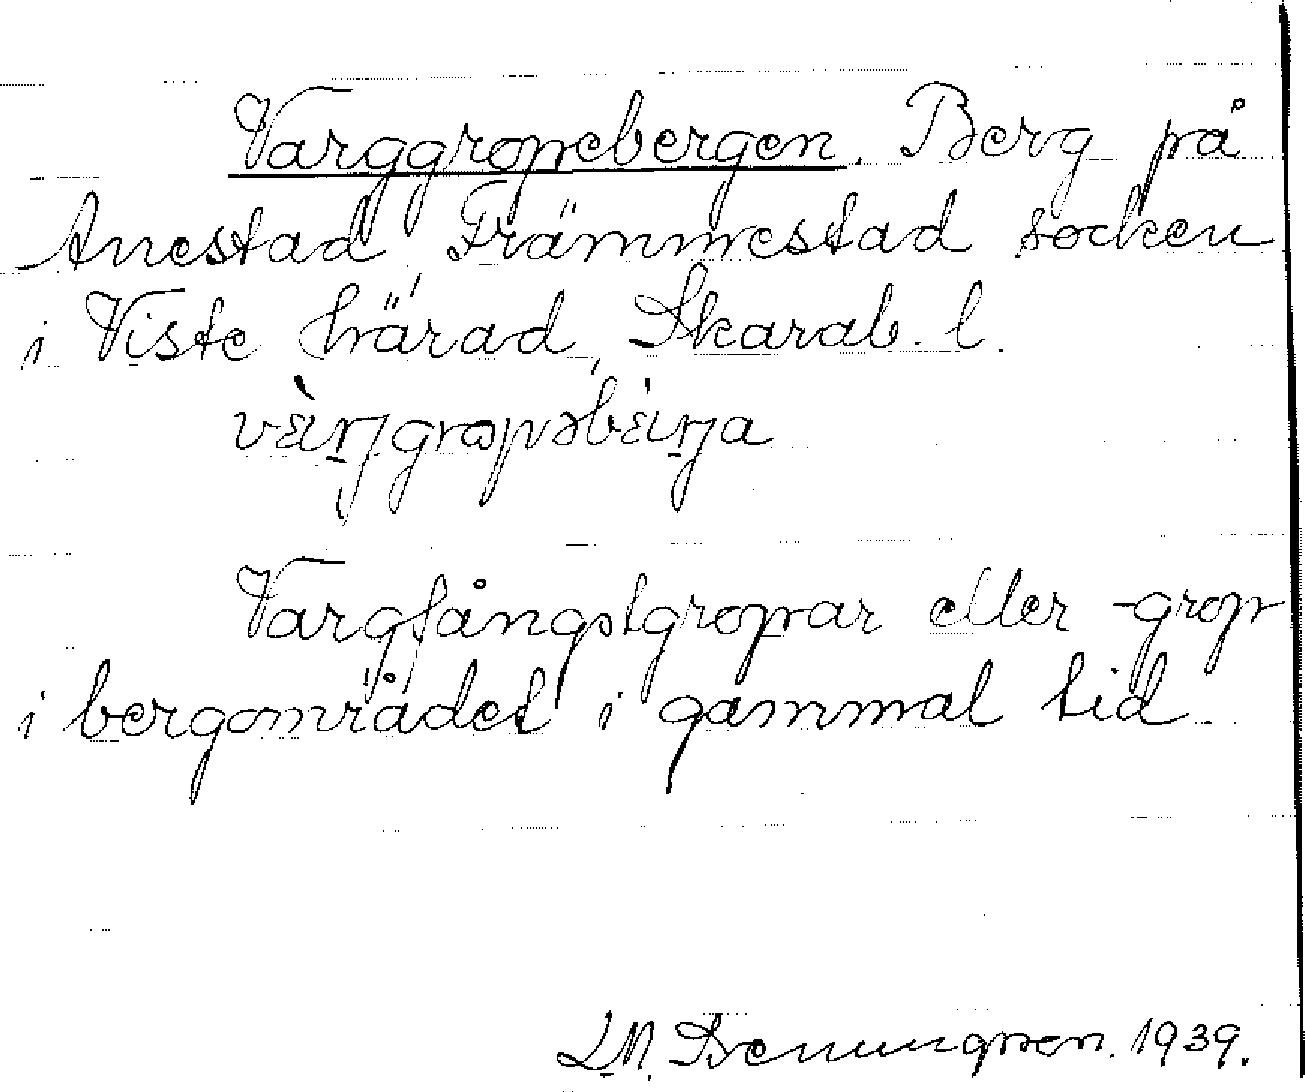 Varggropebergen. Berg på
Anestad, Främmestad socken
i Viste härad, Skarab. l.
Vargfångstgropar eller -grop
i bergområdet i gammal tid
1939.